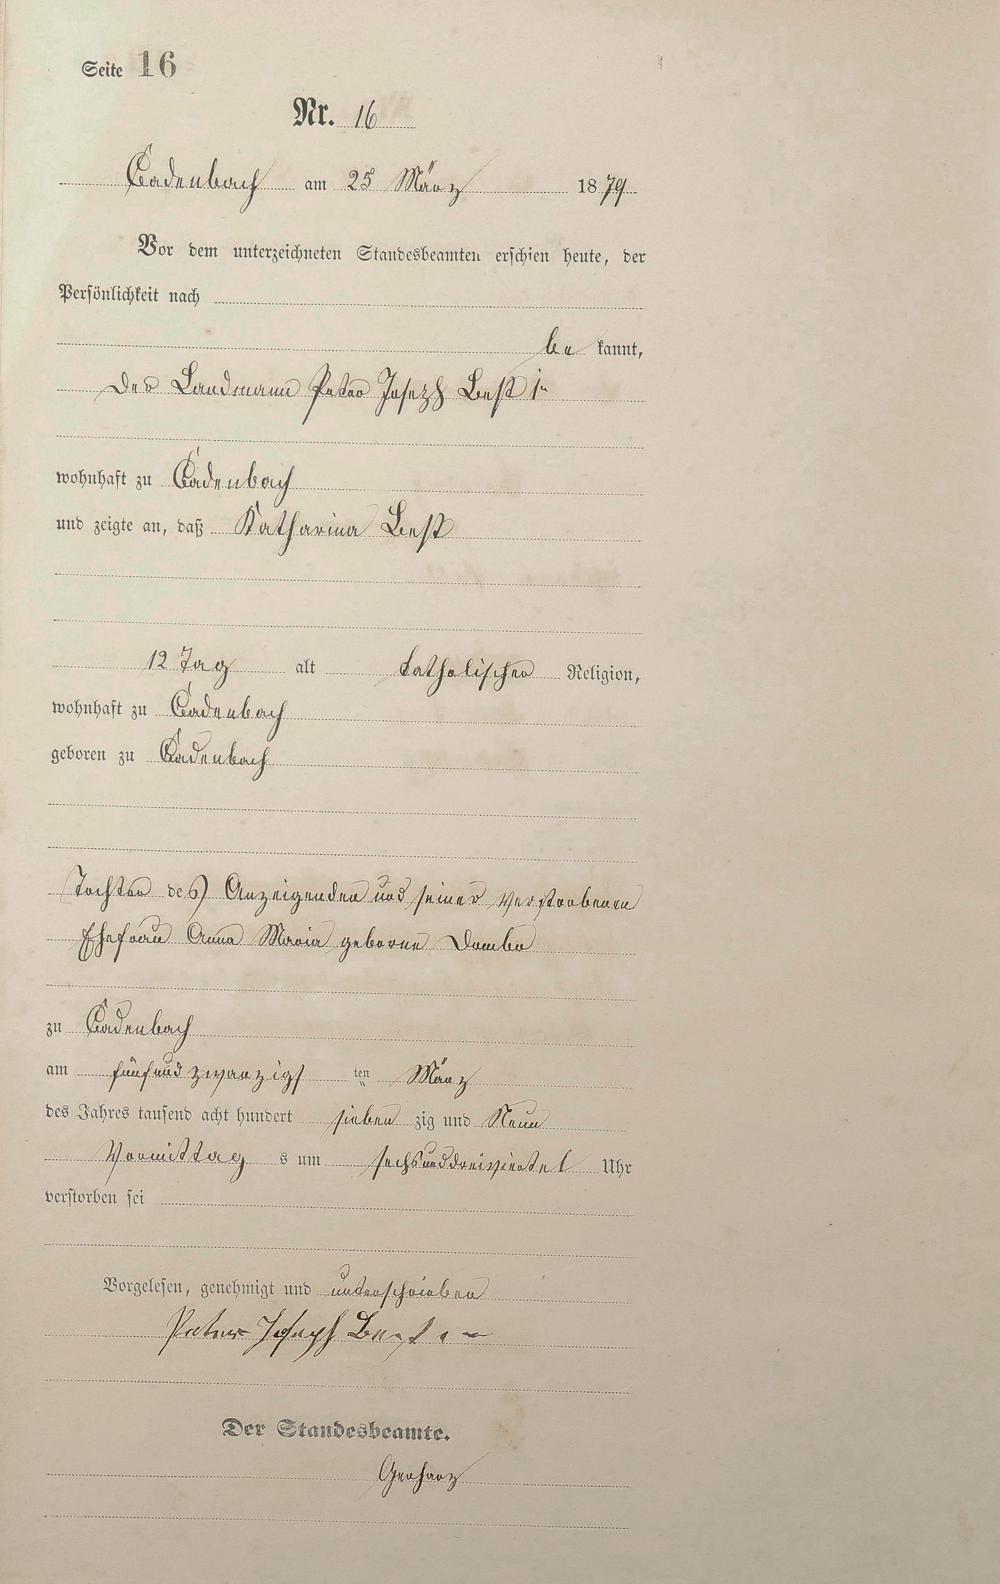 Seite 16
Nr. 16
Cadenbach am 25 März 1879
Vor dem unterzeichneten Standesbeamten erschien heute, der
Persönlichkeit nach
be kannt,
der Landmann Peter Joseph Best jr
wohnhaft zu Cadenbach
und zeigte an, daß Katharina Best
12 Tag alt katholischer Religion,
wohnhaft zu Cadenbach
geboren zu Cadenbach
Tochter des Anzeigenden und seiner verstorbenen
Ehefrau Anna Maria geborne Dombo
zu Cadenbach
am fünfundzwanzigs ten März
des Jahres tausend acht hundert sieben zig und Neun
Vormittag s um sechsunddreiviertel Uhr
verstorben sei
Vorgelesen, genehmigt und unterschrieben
Peter Joseph Best
Der Standesbeamte.
Gerharz